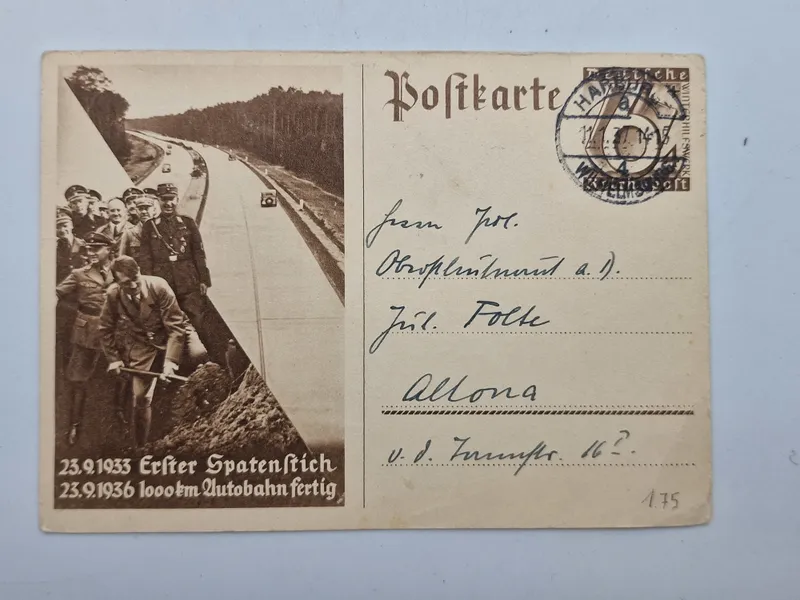 Postkarte
Deutsche
WINTERHILFSWERK
6
Reichspost
HAMBURG
a
11.1.37. 14-15
4
WILHELMSBURG
Herrn Pol.
Oberstleutnant a. D.
Jul. Folte
Altona
v. d. Tannstr. 16 I.
23.9.1933 Erster Spatenstich
23.9.1936 1000 km Autobahn fertig
1.75